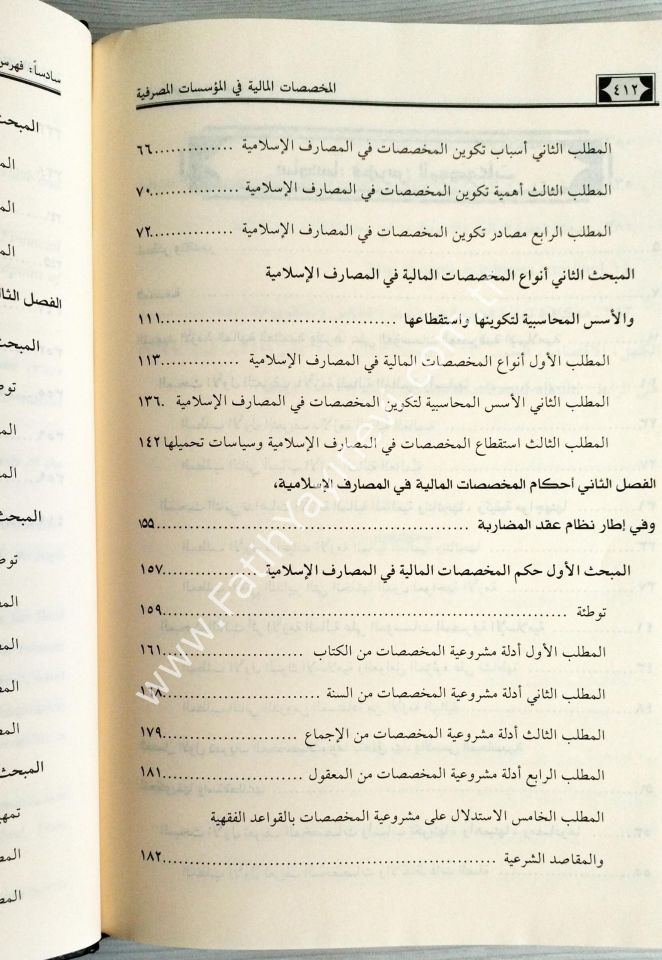 ٤١٢
المخصصات المالية في المؤسسات المصرفية
المطلب الثاني أسباب تكوين المخصصات في المصارف الإسلامية ..............٦٦
المطلب الثالث أهمية تكوين المخصصات في المصارف الإسلامية ..............٧٠
المطلب الرابع مصادر تكوين المخصصات في المصارف الإسلامية ..............٧٢
المبحث الثاني أنواع المخصصات المالية في المصارف الإسلامية
والأسس المحاسبية لتكوينها واستقطاعها ....................................١١١
المطلب الأول أنواع المخصصات المالية في المصارف الإسلامية ..............١١٣
المطلب الثاني الأسس المحاسبية لتكوين المخصصات في المصارف الإسلامية .١٣٦
المطلب الثالث استقطاع المخصصات في المصارف الإسلامية وسياسات تحميلها ١٤٢
الفصل الثاني أحكام المخصصات المالية في المصارف الإسلامية،
وفي إطار نظام عقد المضاربة ....................................١٥٥
المبحث الأول حكم المخصصات المالية في المصارف الإسلامية ................١٥٧
توطئة ..................................................١٥٩
المطلب الأول أدلة مشروعية المخصصات من الكتاب ......................١٦١
المطلب الثاني أدلة مشروعية المخصصات من السنة ......................١٦٨
المطلب الثالث أدلة مشروعية المخصصات من الإجماع ....................١٧٩
المطلب الرابع أدلة مشروعية المخصصات من المعقول ....................١٨١
المطلب الخامس الاستدلال على مشروعية المخصصات بالقواعد الفقهية
والمقاصد الشرعية ............................................١٨٢
www.FatihYayinevi.com.tr
سادساً: فهرس
المبحث
الفصل الثا
المبحث
المبحث
المبحث